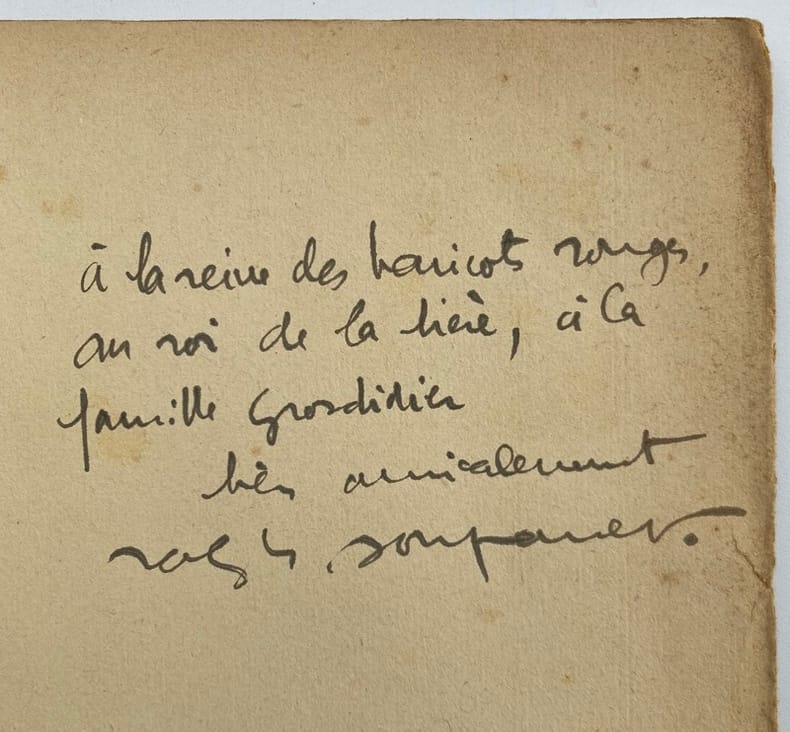 à la reine des haricots rouges,
au roi de la bière, à la
famille Grosdidier
bien amicalement
ralph soupault.